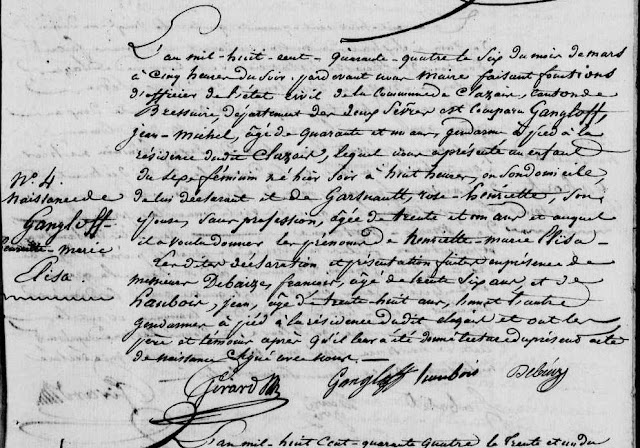 L'an mil-huit-cent-quarante-quatre le Six du mois de mars
à Cinq heures du Soir. pardevant nous maire faisant fonctions
d'officier de l'état civil de la Commune de Clazais, canton de
Bressuire, département des Deux Sèvres est comparu Gangloff,
jean-Michel, âgé de quarante et un ans, gendarme à pied à la
résidence dudit Clazais, lequel nous a présenté un enfant
du Sexe féminin né hier Soir à huit heures, en Son domicile
de lui déclarant et de Garsuault, rose-henriette, Son
épouse, Sans profession, âgée de trente et un ans et auquel
il a voulu donner les prénoms d'henriette-marie Elisa
Les dites déclaration et présentation faites en présence de
messieurs Debaize, francois, âgé de trente Six ans et de
haubois, jean, âgé de trente-huit ans, l'un et l'autre
gendarmes à pied à la résidence dudit Clazais et ont les
père et témoins après qu'il leur a été donné lecture du présent acte
de naissance Signé avec nous.
N° 4.
Naissance de
Gangloff
henriette-marie
Elisa.
Gérard
Gangloff
L'an mil-huit Cent-quarante quatre le trente et un du